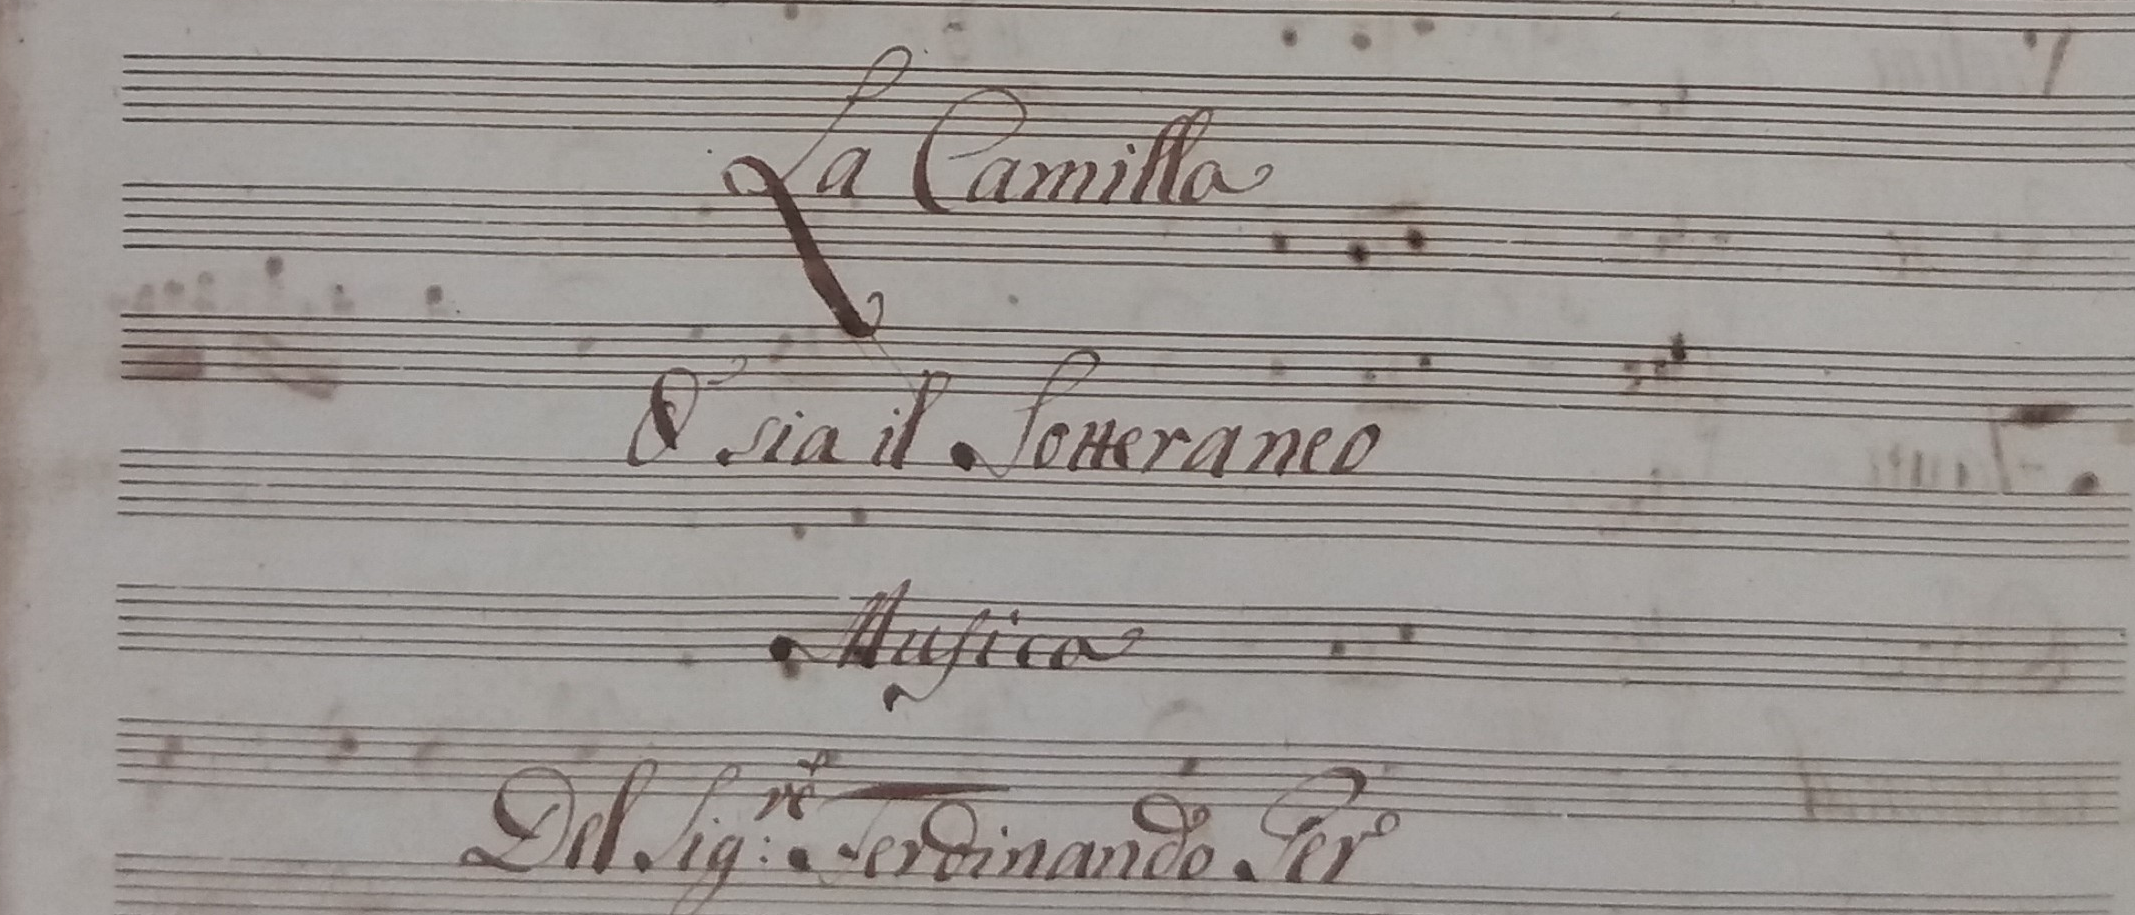 La Camilla
O' sia il Sotteraneo
Musica
Del Sig:re Ferdinando Per